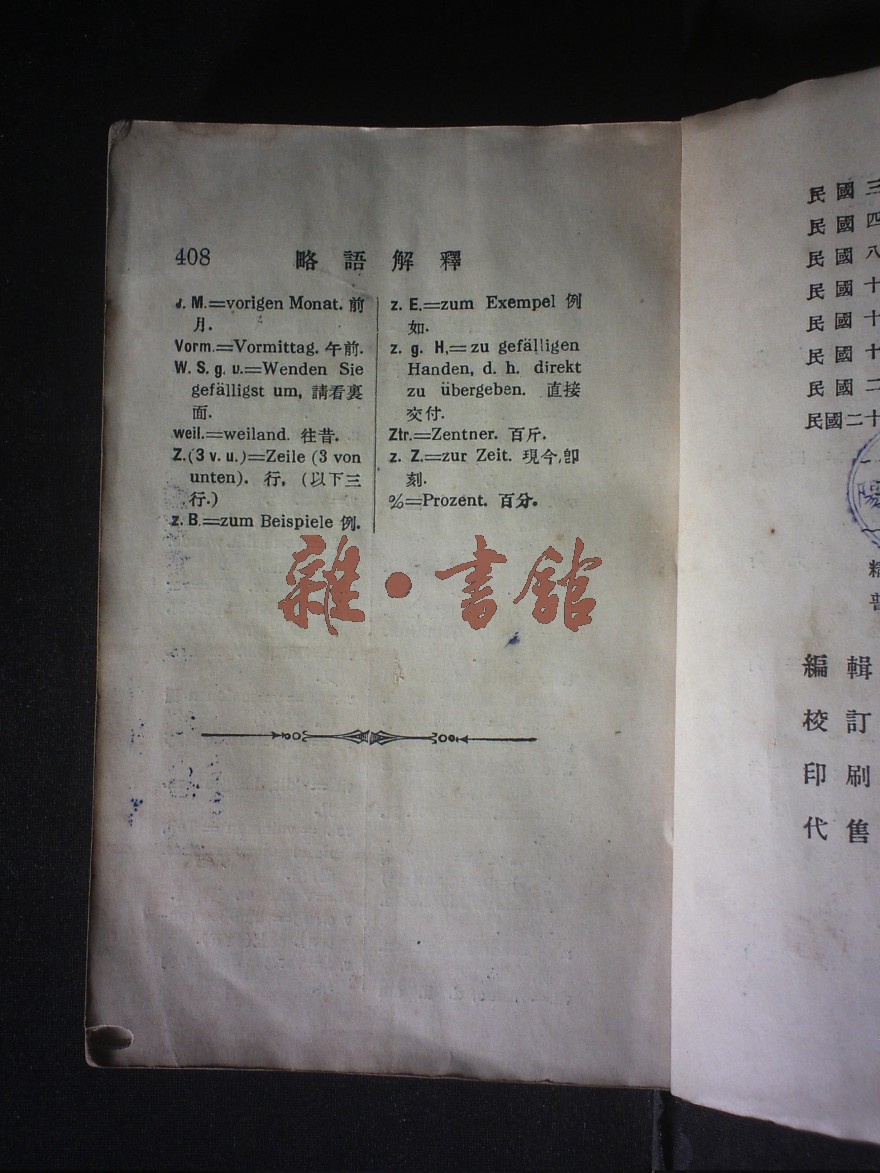 408 略語解釋
v. M.=vorigen Monat. 前
月.
Vorm.=Vormittag. 午前.
W. S. g. u.=Wenden Sie
gefälligst um, 請看裏
面.
weil.=weiland. 往昔.
Z.(3 v. u.)=Zeile (3 von
unten). 行, (以下三
行.)
z. B.=zum Beispiele 例.
z. E.=zum Exempel 例
如.
z. g. H,=zu gefälligen
Handen, d. h. direkt
zu übergeben. 直接
交付.
Ztr.=Zentner. 百斤.
z. Z.=zur Zeit. 現今,卽
刻.
%=Prozent. 百分.
雜·書館
民國三
民國四
民國八
民國十
民國十
民國十
民國二
民國二十
陽
精
普
編輯
校訂
印刷
代售